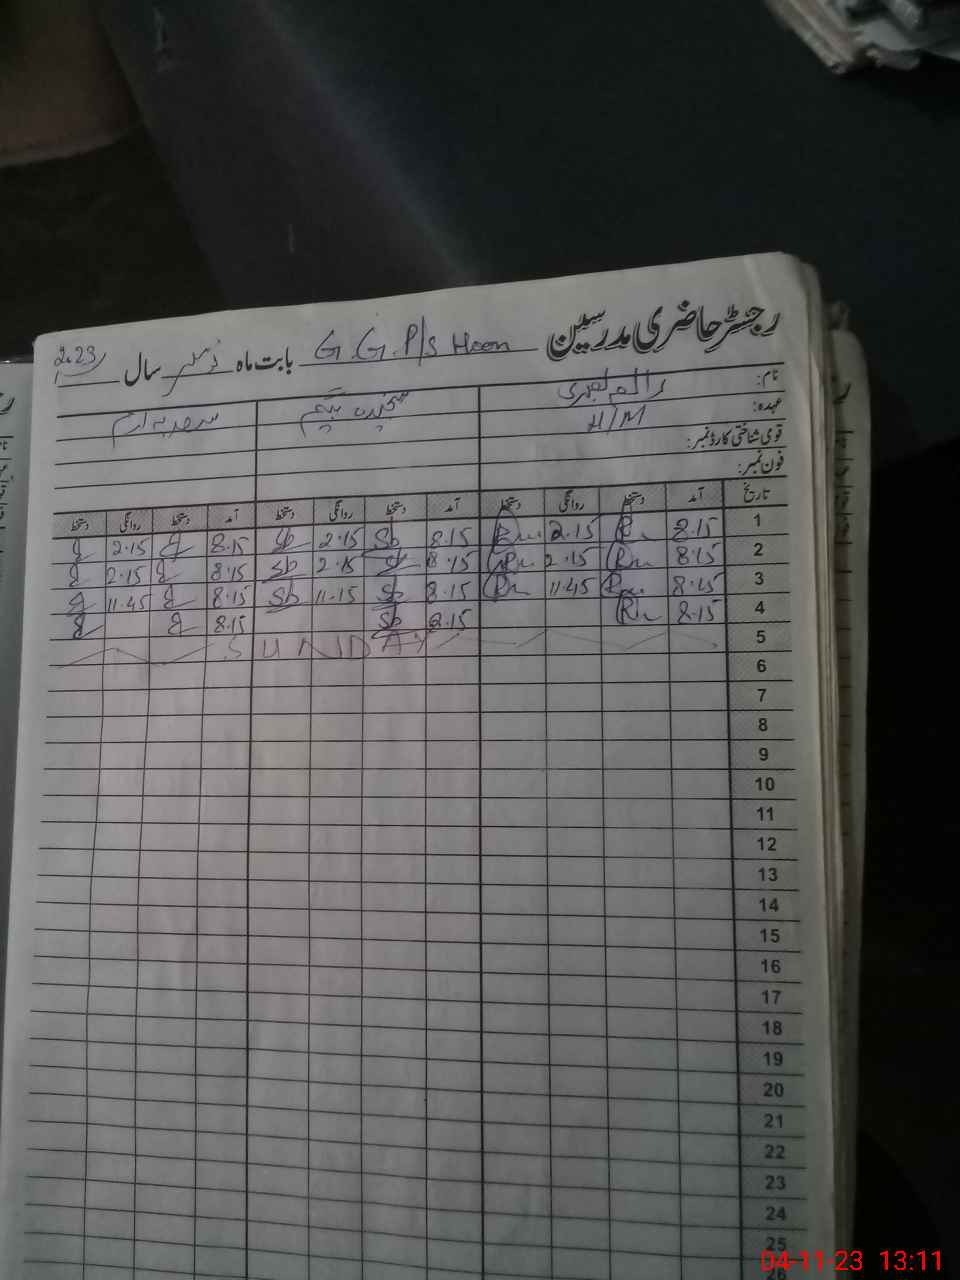 رجسٹر حاضری مدرسین G.G.P/S Hoon بابت ماہ نومبر سال 2023
نام:
عہدہ: H/M
بیگم
قومی شناختی کارڈ نمبر:
فون نمبر:
تاریخ آمد دستخط روانگی دستخط آمد دستخط روانگی دستخط آمد دستخط روانگی دستخط
1 8.15 2.15 8.15 Sb 2.15 Sb 8.15 2.15
2 8.15 2.15 8.15 Sb 2.15 Sb 8.15 2.15
3 8.15 11.45 8.15 Sb 11.15 Sb 8.15 11.45
4 8.15 8.15 Sb 8.15
5 SUNDAY
6
7
8
9
10
11
12
13
14
15
16
17
18
19
20
21
22
23
24
25
26
04-11-23 13:11